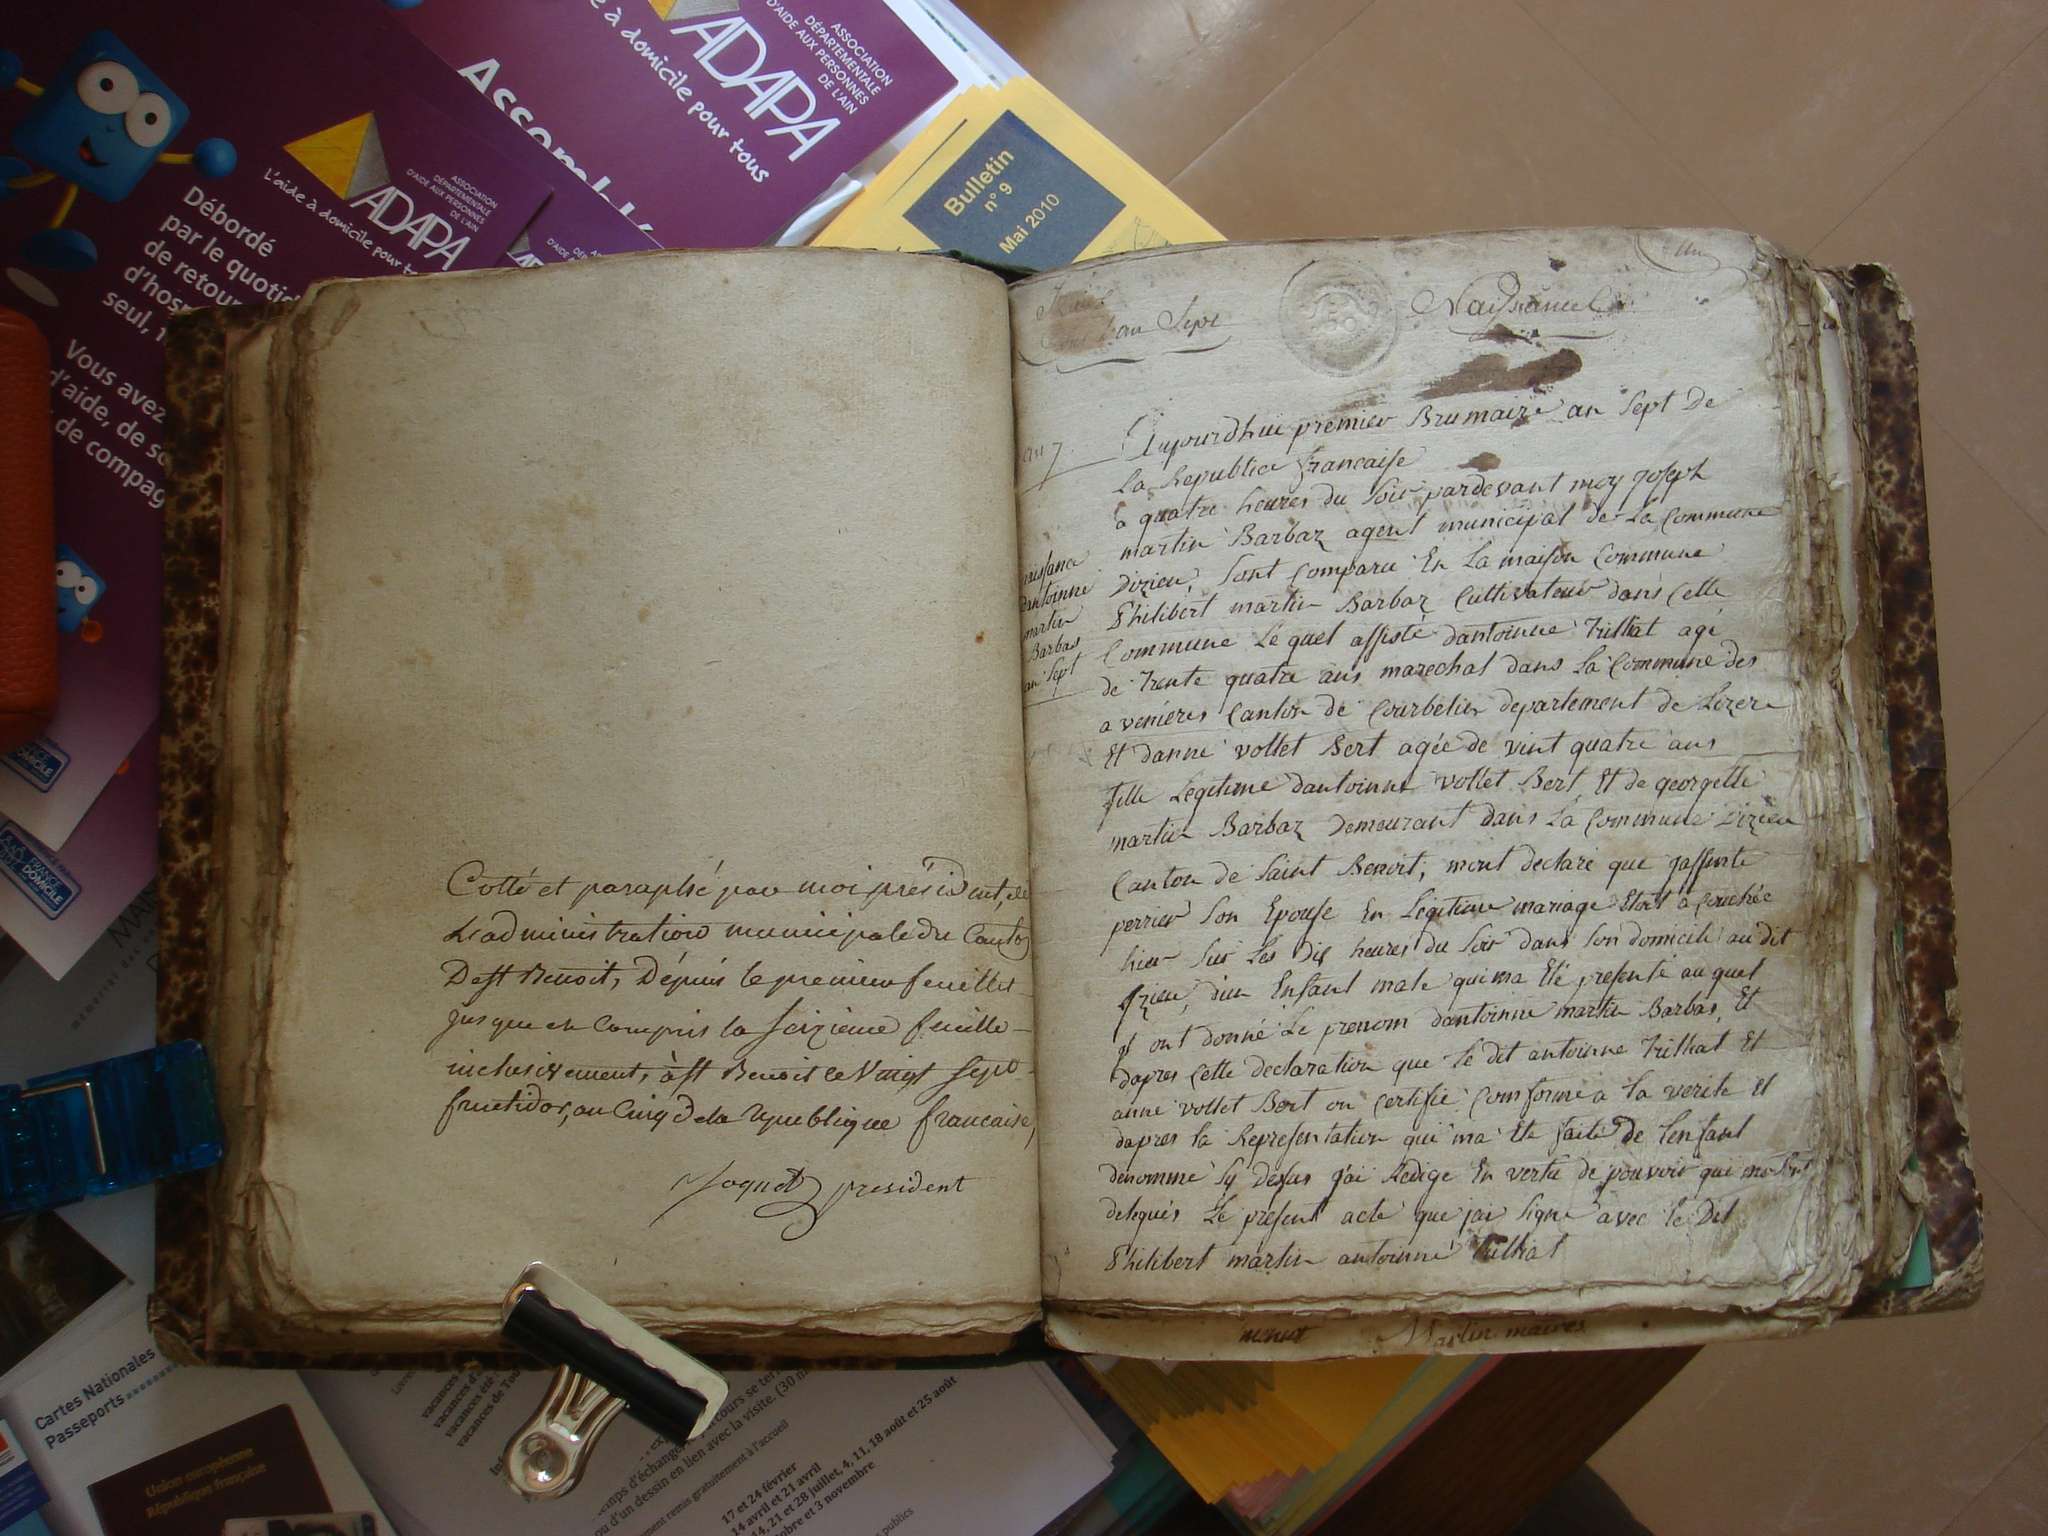 ASSOCIATION
DÉPARTEMENTALE
D'AIDE AUX PERSONNES
DE L'AIN
ADAPA
à domicile pour tous
ASSOCIATION
DÉPARTEMENTALE
D'AIDE AUX PERSONNES
DE L'AIN
ADAPA
L'aide à domicile pour
Débordé
par le quotid
de retour
d'hos
seul,
Vous avez
d'aide, de so
de compag
FRANCE
DOMICILE
Bulletin
n° 9
Mai 2010
Cotté et paraphé par moi président, de
L'administration municipale du Canton
De st Benoit, Dépuis le premier feuillet
jusque et compris la seizieme feuille
inclusivement, à st Benoit le Vingt sept
fructidor, an Cinq de la republique francaise,
Joquet president
an Sept
an 7
naissance
dantoinne
martin
Barbas
an Sept
Aujourdhui premier Brumaire an Sept De
La Republice francaise
a quatre heures du Soir pardevant moy Joseph
martin Barbaz agent municipal de La Commune
Dizieu, Sont Comparu En La maison Commune
Philibert martin Barbaz Cultivateur dans Celle
Commune Le quel assisté dantoinne trilliat agé
de trente quatre ans marechal dans La Commune des
avenieres Canton de Courbelin departement de Lizere
Et danne vollet Bert agée de vint quatre ans
fille Legitime dantoinne vollet Bert Et de georgette
martin Barbaz Demeurant dans La Commune Dizieu
Canton de Saint Benoit, mont declaré que jassinte
perrier Son Epouse En Legitime mariage Etoit a Couchée
hier Sur Les dix heures du Soir dans Son domicile au dit
Izieu, dun Enfant male qui ma Eté presenté au quel
il ont donné Le prenom dantoinne martin Barbas, Et
dapres Cette declaration que Le dit antoinne trilliat Et
anne vollet Bert on Certifié Comforme a la verite Et
dapres la Representation qui ma Ete faite de lenfant
denommé Sy Desus j'ai Redige En vertu de pouvoir qui me Sont
delegués Le present acte que jai Signe avec le Dit
Philibert martin antoinne trilliat
Martin maires
Cartes Nationales
Passeports
Union européenne
République française
17 et 24 février
14 avril et 21 avril
14, 21 et 28 juillet, 4, 11, 18 août et 25 août
et 3 novembre